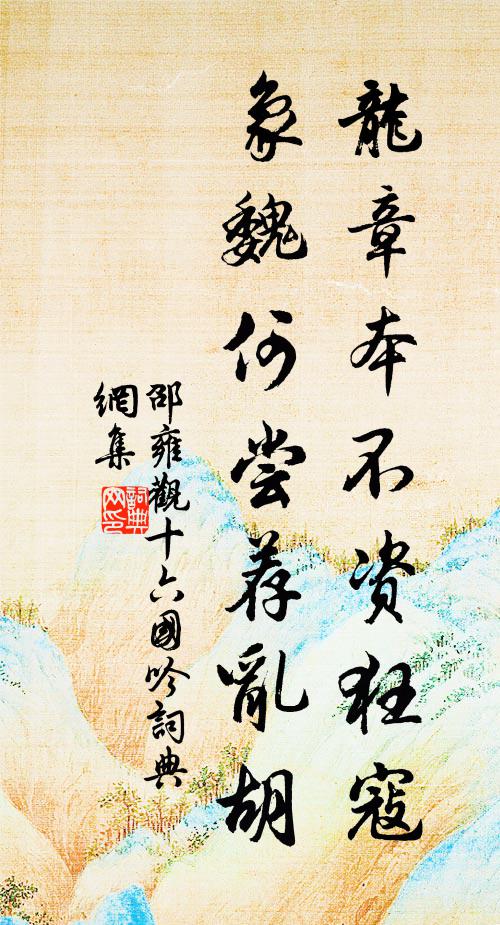 龍章本不資狂寇
象魏何嘗荐亂胡
邵雍觀十六國吟詞典
網集
詞典網印